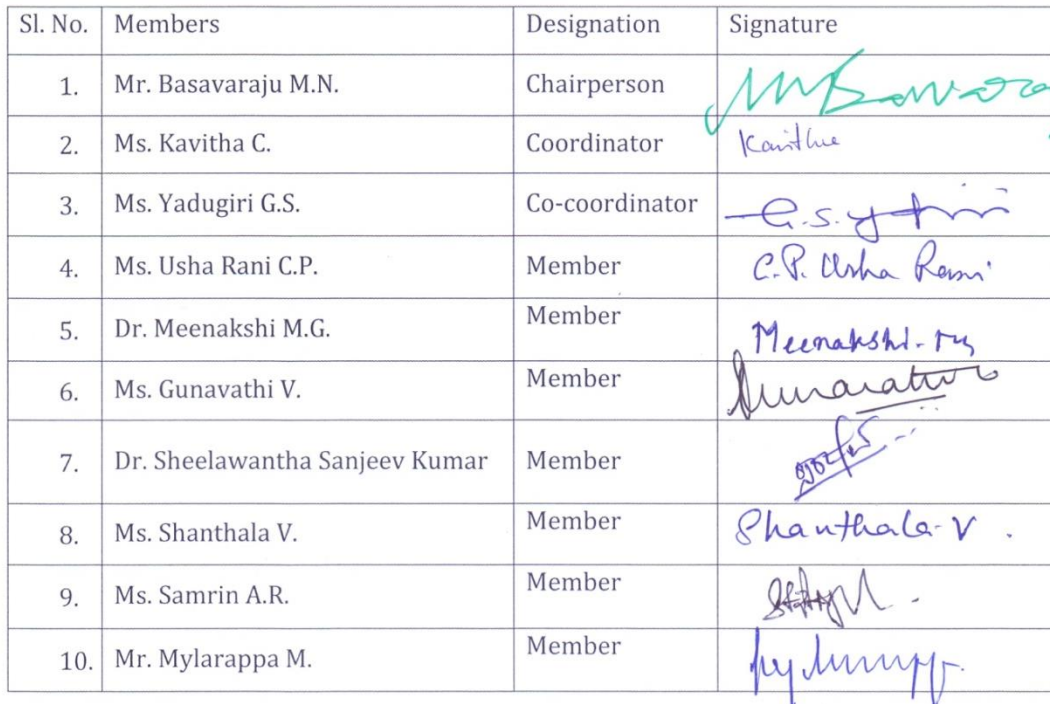 Sl. No. Members Designation Signature
1. Mr. Basavaraju M.N. Chairperson
2. Ms. Kavitha C. Coordinator Kavitha
3. Ms. Yadugiri G.S. Co-coordinator G.S.
4. Ms. Usha Rani C.P. Member C.P. Usha Rani
5. Dr. Meenakshi M.G. Member Meenakshi
6. Ms. Gunavathi V. Member
7. Dr. Sheelawantha Sanjeev Kumar Member
8. Ms. Shanthala V. Member Shanthala-V.
9. Ms. Samrin A.R. Member
10. Mr. Mylarappa M. Member